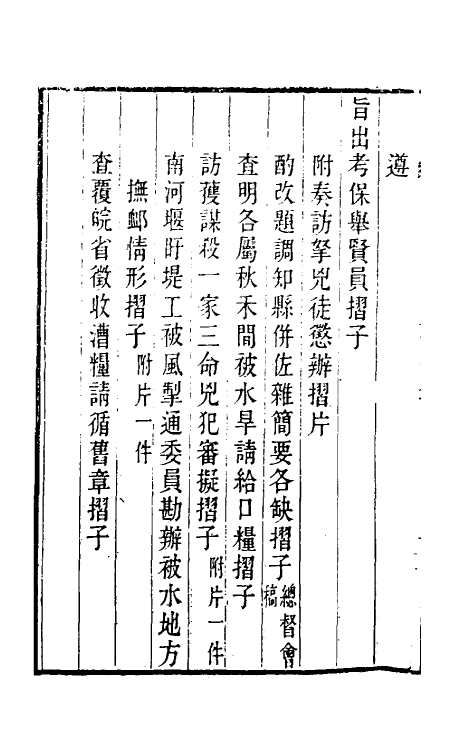 遵
旨出考保舉賢員摺子
附奏訪拏兇徒懲辦摺片
酌改題調知縣併佐雜簡要各缺摺子總督會稿
查明各屬秋禾間被水旱請給口糧摺子
訪獲謀殺一家三命兇犯審擬摺子附片一件
南河堰盱堤工被風掣通委員勘辦被水地方
撫䘏情形摺子附片一件
查覆皖省徵收漕糧請循舊章摺子